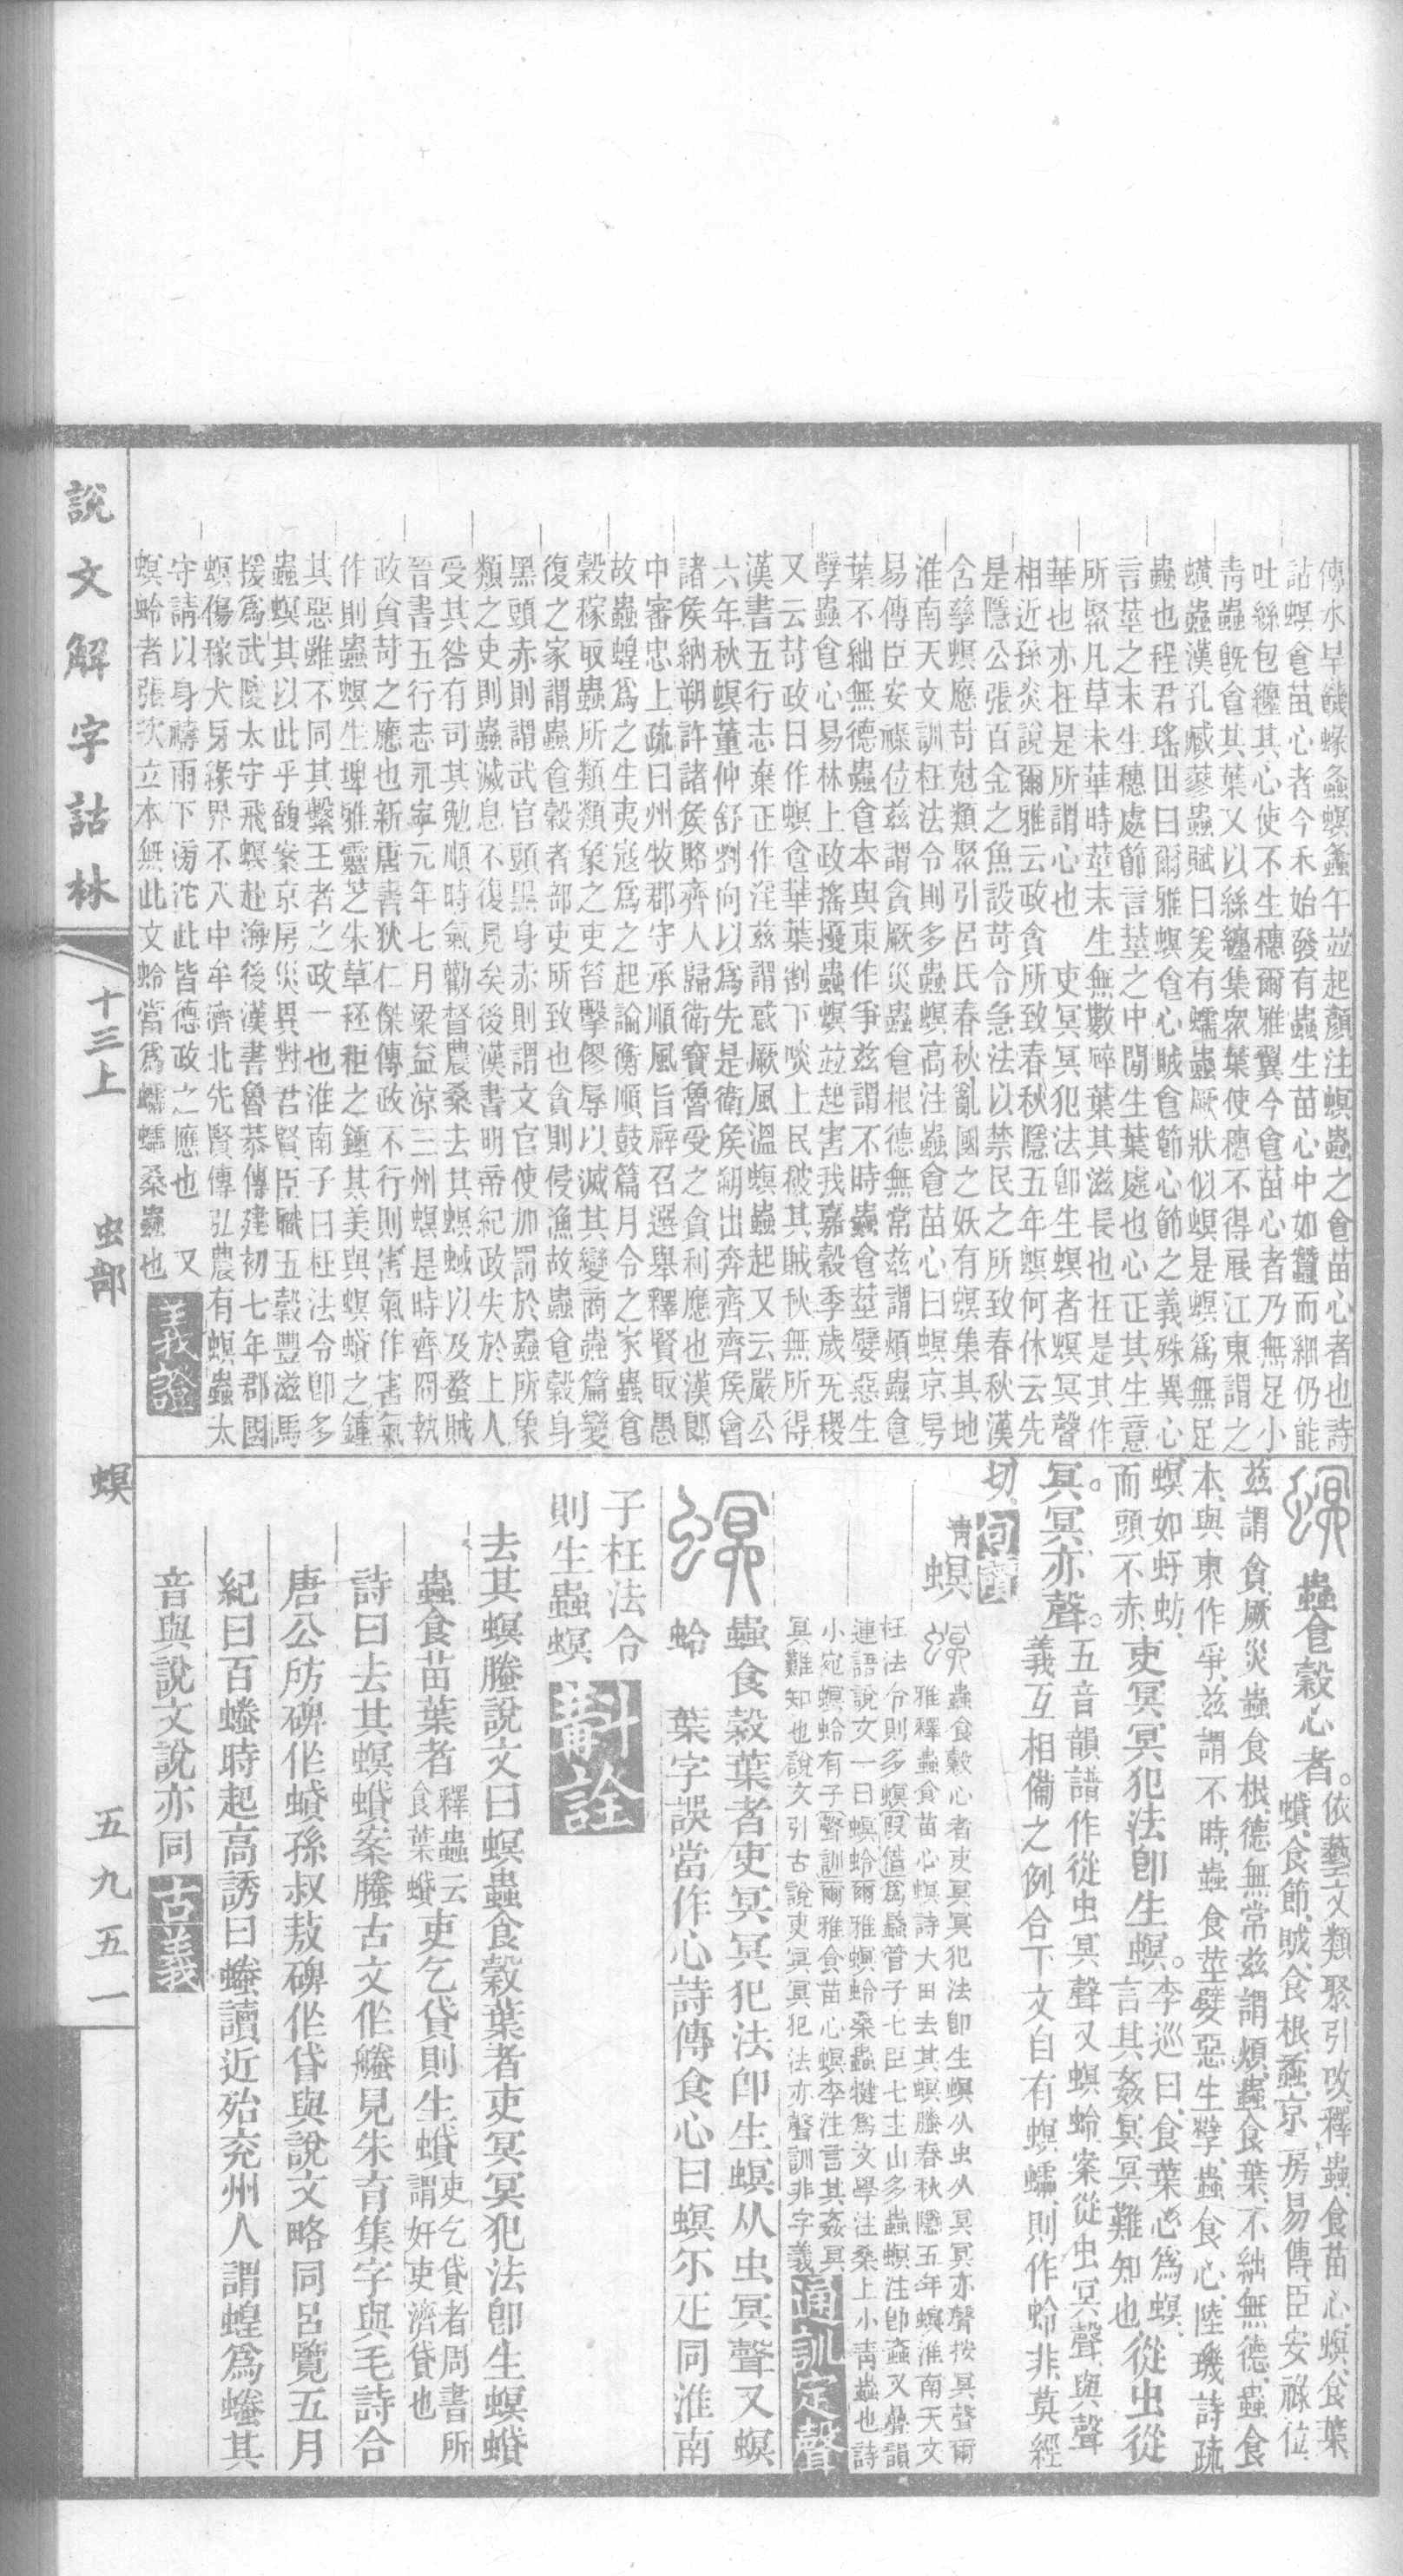 傳水旱饑蝝螽螟螽午並起顏注螟蟲之食苗心者也詩
詁螟食苗心者今禾始發有蟲生苗心中如蠶而細仍能
吐絲包纏其心使不生穗爾雅翼今食苗心者乃無足小
青蟲旣食其葉又以絲纏集衆葉使穗不得展江東謂之
蟥蟲漢孔臧蓼蟲賦曰爰有蠕蟲厥狀似螟是螟爲無足
蟲也程君瑤田曰爾雅螟食心賊食節心節之義殊異心
言莖之末生穗處節言莖之中閒生葉處也心正其生意
所聚凡草未華時莖末生無數碎葉其滋長也在是其作
華也亦在是所謂心也　吏冥冥犯法卽生螟者螟冥聲
相近孫炎說爾雅云政貪所致春秋隱五年螟何休云先
是隱公張百金之魚設苛令急法以禁民之所致春秋漢
含孳螟應苛尅類聚引呂氏春秋亂國之妖有螟集其地
淮南天文訓枉法令則多蟲螟高注蟲食苗心曰螟京房
易傳臣安祿位茲謂貪厥災蟲食根德無常茲謂煩蟲食
葉不絀無德蟲食本與東作爭茲謂不時蟲食莖嬖惡生
孽蟲食心易林上政搖擾蟲螟並起害我嘉穀季歲無稷
又云苛政日作螟食華葉割下啖上民被其賊秋無所得
漢書五行志棄正作淫茲謂惑厥風溫螟蟲起又云嚴公
六年秋螟董仲舒劉向以爲先是衛侯朔出奔齊齊侯會
諸侯納朔許諸侯賂齊人歸衛寶魯受之貪利應也漢郎
中審忠上疏曰州牧郡守承順風旨辟召選舉釋賢取愚
故蟲蝗爲之生夷寇爲之起論衡順鼓篇月令之家蟲食
穀稼取蟲所類類象之吏笞擊僇辱以滅其變商蟲篇變
復之家謂蟲食穀者部吏所致也貪則侵漁故蟲食穀身
黑頭赤則謂武官頭黑身赤則謂文官使加罰於蟲所象
類之吏則蟲滅息不復見矣後漢書明帝紀政失於上人
受其咎有司其勉順時氣勸督農桑去其螟蜮以及蝥賊
晉書五行志永寧元年七月梁益涼三州螟是時齊冏執
政貪苛之應也新唐書狄仁傑傳政不行則害氣作害氣
作則蟲螟生埤雅靈芝朱草秠秬之鍾其美與螟螣之鍾
其惡雖不同其繫王者之政一也淮南子曰枉法令卽多
蟲螟其以此乎馥案京房災異對君賢臣職五穀豐滋馬
援爲武陵太守飛螟赴海後漢書魯恭傳建初七年郡國
螟傷稼犬牙緣界不入中牟濟北先賢傳弘農有螟蟲太
守請以身禱雨下滂沱此皆德政之應也　又
螟蛉者張次立本無此文蛉當爲蠕蠕桑蟲也 義證
蟲食穀心者。依藝文類聚引改釋蟲食苗心螟食葉
蟘食節賊食根蟊京房易傳臣安祿位
茲謂貪厥災蟲食根德無常茲謂煩蟲食葉不絀無德蟲食
本與東作爭茲謂不時蟲食莖嬖惡生孽蟲食心陸璣詩疏
螟如蚄而頭不赤吏冥冥犯法卽生螟。李巡曰食葉心爲螟言其姦冥冥難知也從虫從
冥冥亦聲。五音韻譜作從虫冥聲又螟蛉案從虫冥聲與聲
義互相備之例合下文自有螟蠕則作蛉非莫經
切 句讀
青 螟 蟲食穀心者吏冥冥犯法卽生螟从虫从冥冥亦聲按冥聲爾
雅釋蟲食苗心螟詩大田去其螟螣春秋隱五年螟淮南天文
枉法令則多螟（假借）爲蟁管子七臣七主山多蟲螟注卽蟁又疊韻
連語說文一曰螟蛉爾雅螟蛉桑蟲犍爲文學注桑上小青蟲也詩
小宛螟蛉有子（聲訓）爾雅食苗心螟李注言其姦冥
冥難知也說文引古說吏冥冥犯法亦聲訓非字義 通訓定聲
蟲食穀葉者吏冥冥犯法卽生螟从虫冥聲又螟
蛉　葉字誤當作心詩傳食心曰螟爾疋同淮南
子枉法令
則生蟲螟 斠詮
去其螟螣說文曰螟蟲食穀葉者吏冥冥犯法卽生螟蟘
蟲食苗葉者釋蟲云食葉蟘吏乞貸則生蟘吏乞貸者周書所謂奸吏濟貸也
詩曰去其螟蟘案螣古文作䗩見朱育集字與毛詩合
唐公房碑作蟘孫叔敖碑作貸與說文略同呂覽五月
紀曰百螣時起高誘曰螣讀近殆兗州人謂蝗爲螣其
音與說文說亦同 古義
說文解字詁林
十三上　虫部　螟　五九五一